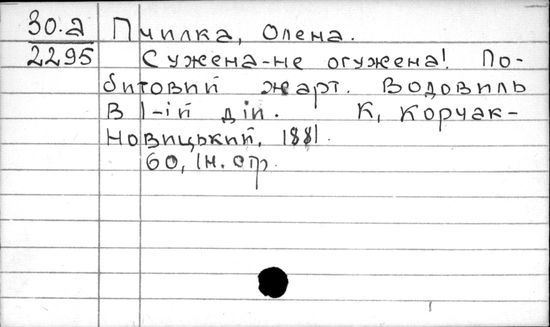 30.а Пчилка, Олена.
2295 Сужена-не огужена! По-
битовий жарт. Водовиль
в 1-ій дій. К, Корчак-
Новицький, 1881.
60, 1н. стр.